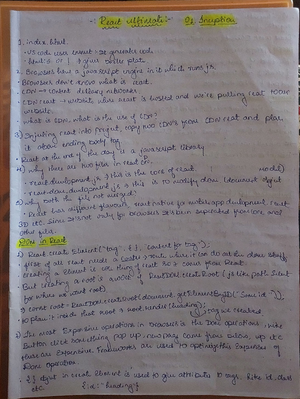 React Ultimate :- 01 Inception
1. index.html
- VS code uses emmet to generate code
2. Browsers have a javascript engine in it which runs js.
- Browsers don't know what is react.
- CDN → content delivery network
- CDN react → website where react is hosted and we're pulling react to our website.
- what is CDN, what is the use of CDN?
3) Injecting react into project, copy two CDN's from CDN react and place
it above ending body tag.
- React at the end of the day is a javascript library
4) why there are two files in react CDN.
- react.development.js → this is the core of react
- react-dom.development.js → this is to modify dom (document object model)
5) why both the files not merged?
- React has different flavours, react native for mobile app development, react
3D etc. since it is not only for browsers it's been separated from core and
other file.
DOM in React
1) React.createElement("tag", {}, content for tag");
- first of all react needs a root where it can do all the dom stuff
- creating a element is core thing of react so it comes from React.
- But creating a root is a work of ReactDOM.createRoot (
for where we want root)
→ const root = ReactDOM.createRoot(document.getElementById("some id"));
→ place it inside that root → root.render(heading);
2) The most Expensive operations in browser is the Dom operations, like
Button click something pop up
these are Expensive Frameworks are used to optimize this Expensive
Dom operation.
- {} object in create Element is used to give attributes to tags. like id, class
etc. {id: "heading"}